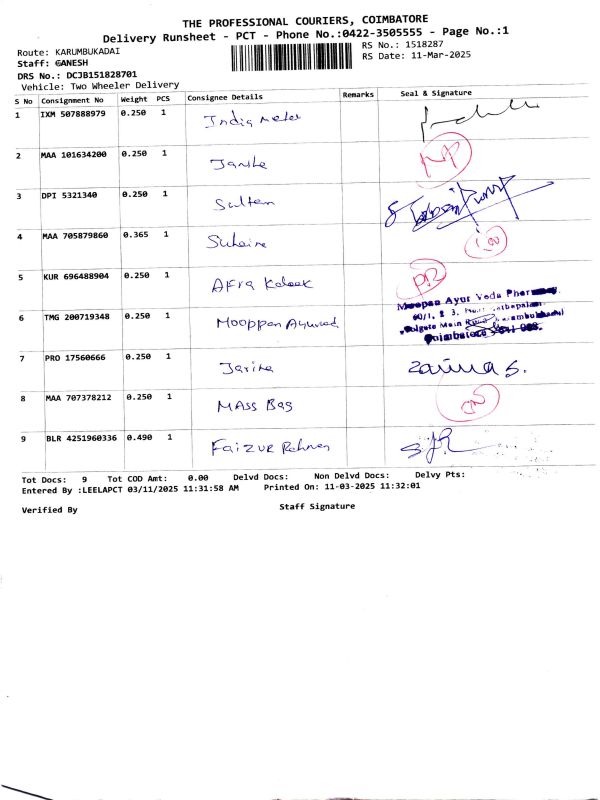 THE PROFESSIONAL COURIERS, COIMBATORE
Delivery Runsheet - PCT - Phone No.:0422-3505555 - Page No.:1
Route: KARUMBUKADAI
RS No.: 1518287
Staff: GANESH
RS Date: 11-Mar-2025
DRS No.: DCJB151828701
Vehicle: Two Wheeler Delivery
S No Consignment No Weight PCS Consignee Details Remarks Seal & Signature
1 IXM 507888979 0.250 1 India meter
2 MAA 101634200 0.250 1
3 DPI 5321340 0.250 1 Sultan
4 MAA 705879860 0.365 1
5 KUR 696488904 0.250 1 AFra
6 TMG 200719348 0.250 1 Mooppan Ayurved
Moopan Ayur Veda
60/1, 2 3,
7 PRO 17560666 0.250 1 Jarina Zarina S.
8 MAA 707378212 0.250 1 MASS Bag
9 BLR 4251960336 0.490 1 FAIZUR Rehman
Tot Docs: 9 Tot COD Amt: 0.00 Delvd Docs: Non Delvd Docs: Delvy Pts:
Entered By :LEELAPCT 03/11/2025 11:31:58 AM Printed On: 11-03-2025 11:32:01
Verified By Staff Signature